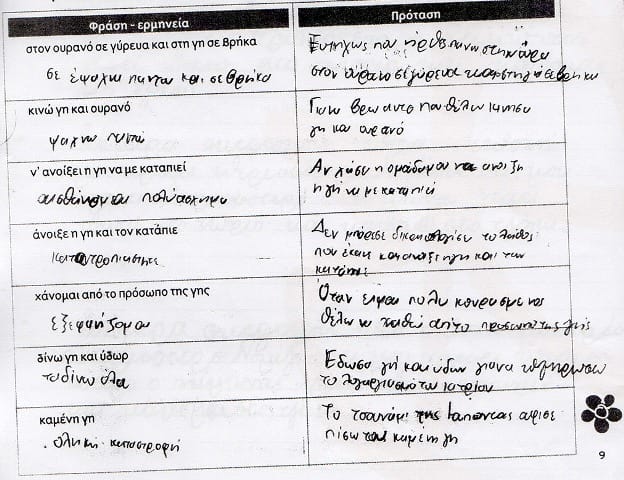 Φράση - ερμηνεία
Πρόταση
στον ουρανό σε γύρευα και στη γη σε βρήκα
σε έψαχνα παντού και σε βρήκα
Ευτηχώς που ήρθες πανω στην ώρα
στον ουρανο σε γύρευα και στη γή σε βρήκα
κινώ γη και ουρανό
ψαχνω παντού
Για να βρω αυτο που θέλω κινησα
γη και ουρανό
ν' ανοίξει η γη να με καταπιεί
αισθάνομαι πολύ ασχημα
Αν χάσει η ομάδα μου να ανοιξη
η γή να με καταπιεί
άνοιξε η γη και τον κατάπιε
καταντροπιαστηκε
Δεν μπόρεσε δικαιολογίσει το λαθος
που έκανε και ανοιξε η γη και τον
κατάπιε
χάνομαι από το πρόσωπο της γης
εξεφανίζομαι
Όταν ειμαι πολυ κουρασμενος
θέλω να χαθώ από το προσωπο της γής
δίνω γη και ύδωρ
τα δίνω όλα
Εδωσα γή και ύδωρ για να
το λογαριασμό των ιατρίων
καμένη γη
ολική καταστροφή
Το τσουνάμι της Ιαπωνίας αφισε
πίσω του καμενη γη
9